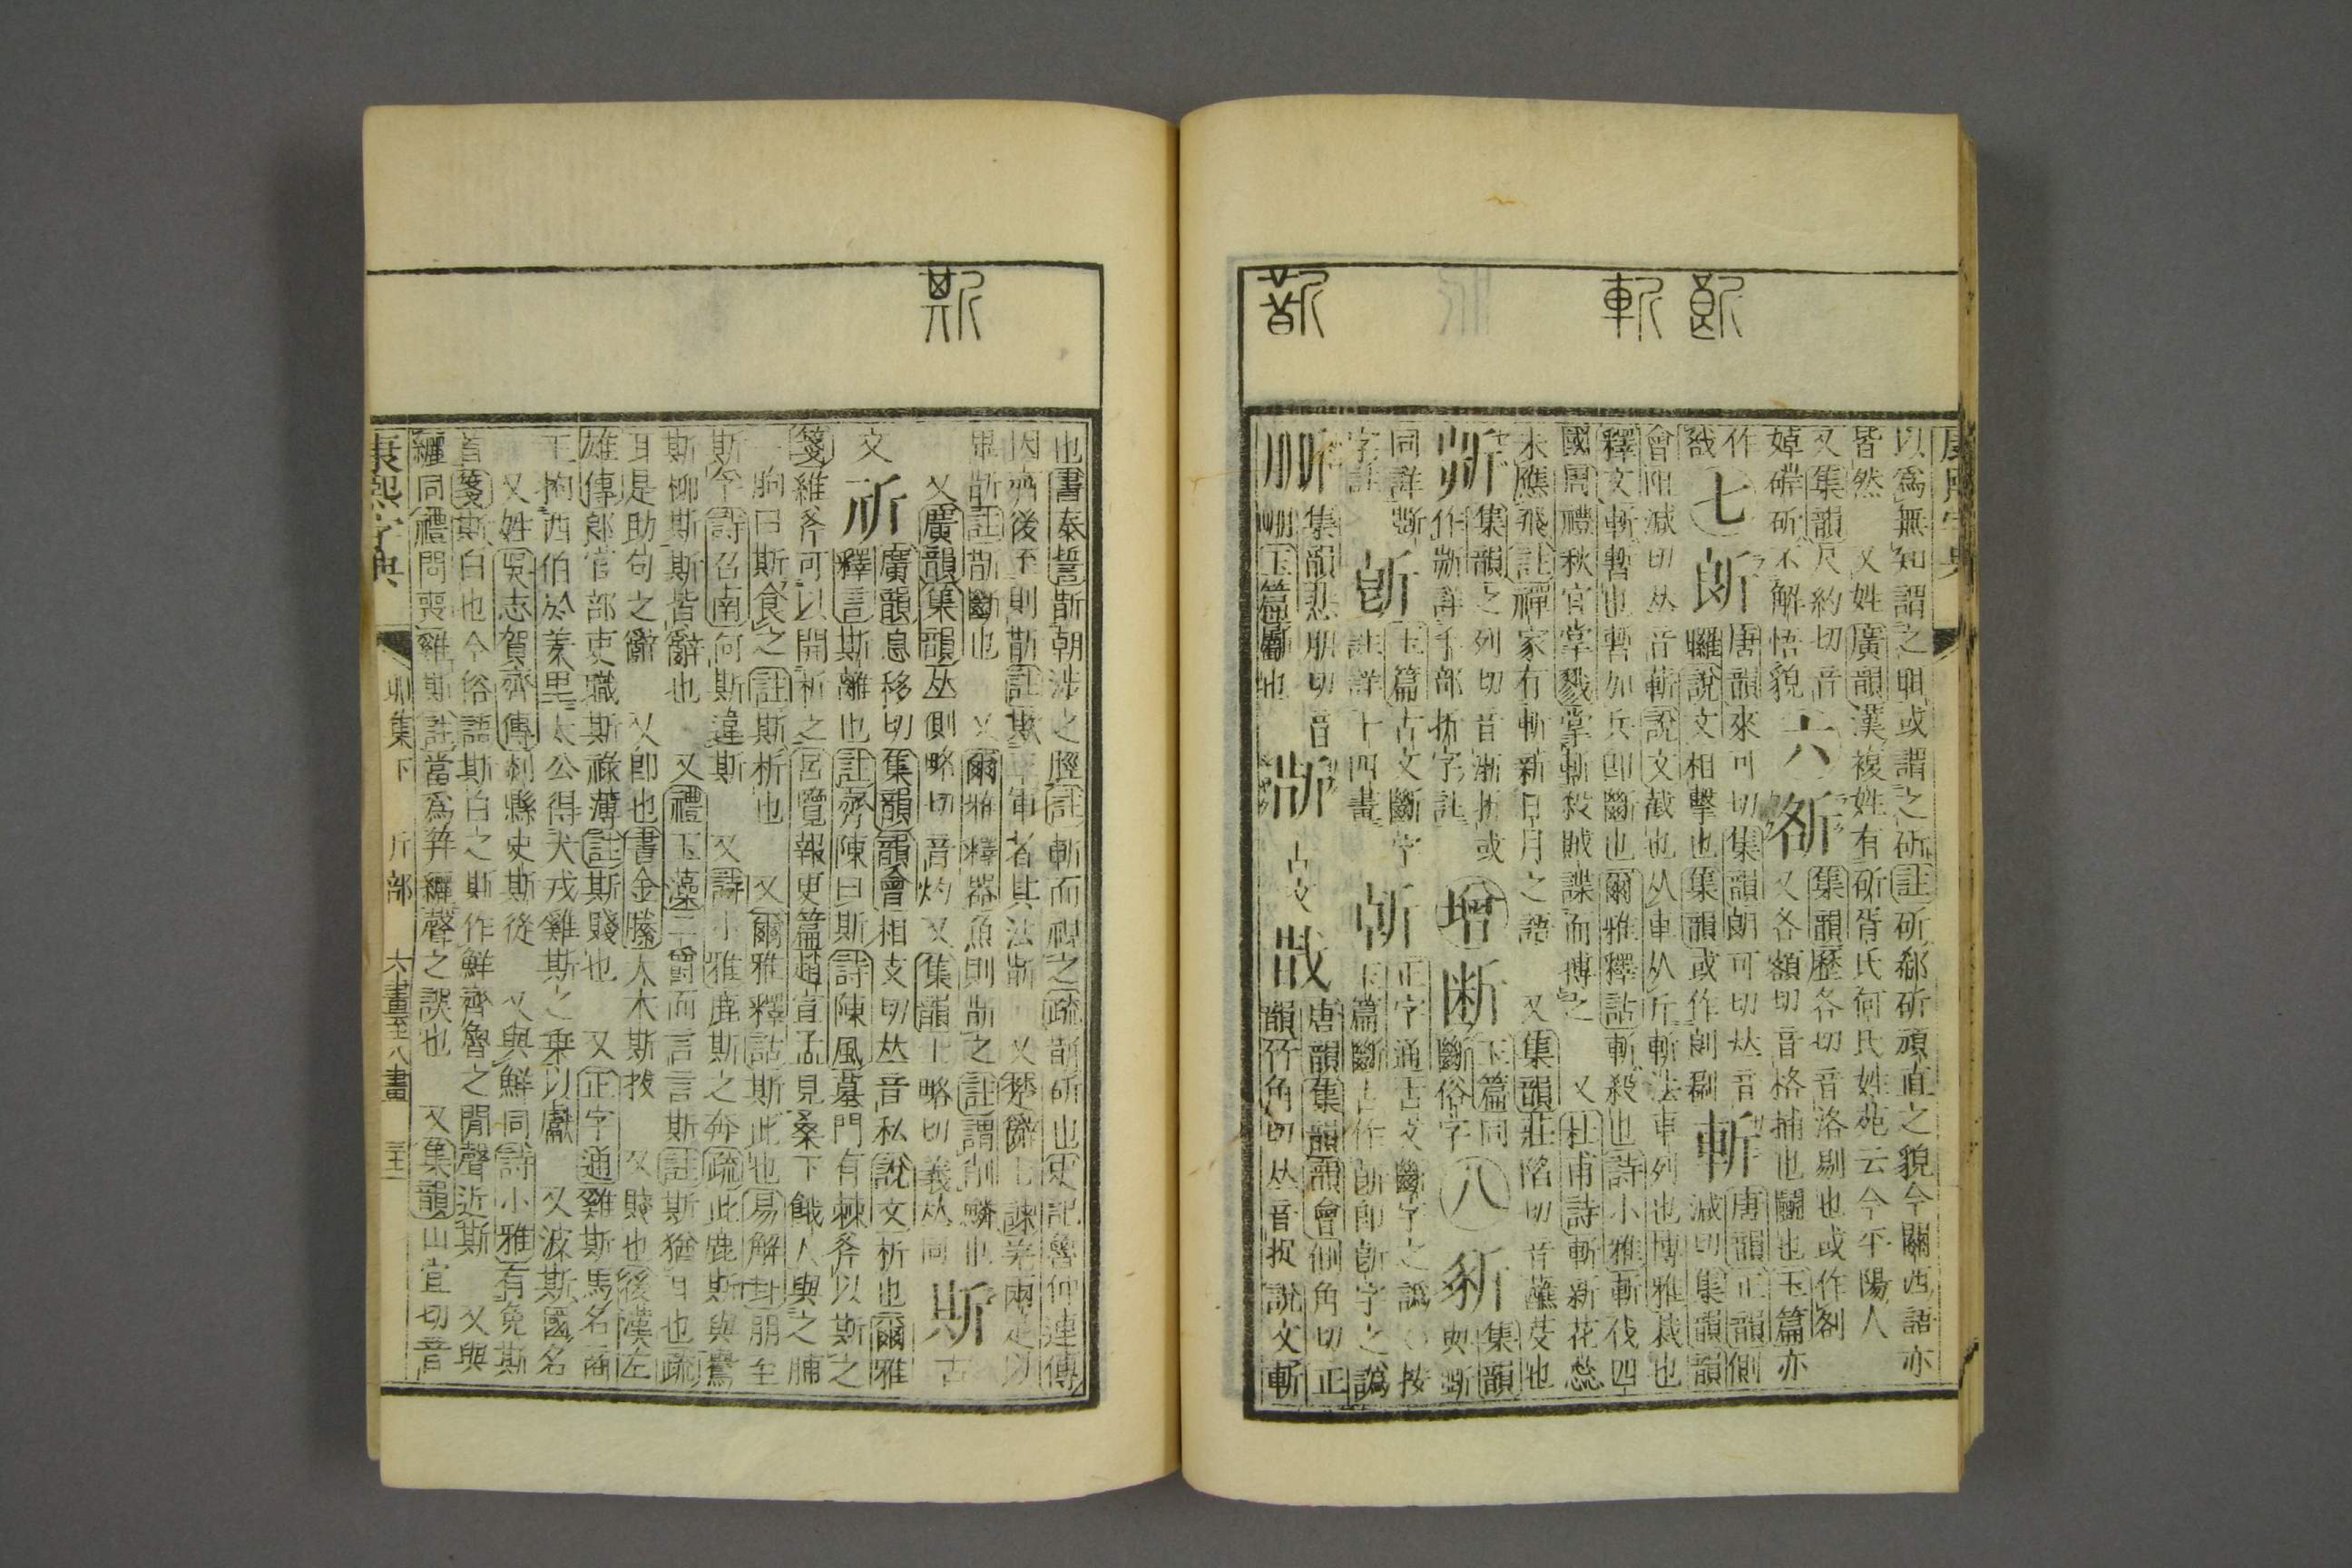 康熙字典
以爲無知謂之䀠或謂之斫註斫郤斫頑直之貌今關西語亦
皆然 又姓廣韻漢複姓有斫胥氏何氏姓苑云今平陽人
又集韻尺約切音
婥礋斫不解悟貌
六
㓢
集韻歷各切音洛剔也或作㓢
又各額切音格捕也鬭也玉篇亦
作
七
斮
唐韻來可切集韻朗可切𠀤音
𥌋說文相擊也集韻或作
斬
唐韻正韻側
減切集韻韻
會阻減切𠀤音𪗆說文截也从車从斤斬法車列也博雅裁也
釋文斬暫也暫加兵卽斷也爾雅釋詁斬殺也詩小雅斬伐四
國周禮秋官掌戮掌斬殺賊諜而搏之 又杜甫詩斬新花蘂
未應飛註禪家有斬新日月之語 又集韻莊陷切音蘸芟也
集韻之列切音浙折或
作㪿詳手部折字註
增
断
玉篇同
斷俗字
八
集韻
與斷
同詳斷
字註
玉篇古文斷字
註詳十四畫
正字通古文斷字之譌〇按
玉篇斷古作㫁卽㫁字之譌
集韻悲朋切音
唐韻集韻韻會側角切正
韻竹角切𠀤音捉說文斬
斮
古文
也書泰誓斮朝涉之脛註斬而視之疏斮斫也史記魯仲連傳
因齊後至則斮註斬
軍者其法斮 又楚辭七諫羌兩足以
畢斮註斮斷也 又爾雅釋器魚則斮之註謂削鱗也
又廣韻集韻𠀤側略切音灼 又集韻士略切義𠀤同
斯
古
文
廣韻息移切集韻韻會相支切𠀤音私說文析也爾雅
釋言斯離也註齊陳曰斯詩陳風墓門有棘斧以斯之
箋維斧可以開析之呂覽報更篇趙宣孟見桑下餓人與之脯
一朐曰斯食之註斯析也 又爾雅釋詁斯此也易解卦朋至
斯孚詩召南何斯違斯 又詩小雅鹿斯之奔疏此鹿斯與鸒
斯柳斯斯皆辭也 又禮玉藻二爵而言言斯註斯猶耳也疏
耳是助句之辭 又卽也書金縢大木斯拔 又賤也後漢左
雄傳郞官部吏職斯祿薄註斯賤也 又正字通雞斯馬名商
王拘西伯於羑里太公得犬戎雞斯之乗以獻 又波斯國名
又姓吳志賀齊傳剡縣史斯從 又與鮮同詩小雅有兔斯
首箋斯白也今俗語斯白之斯作鮮齊魯之閒聲近斯 又與
纚同禮問喪雞斯註當爲筓纚聲之誤也 又集韻山宜切音
康熙字典
卯集下
斤部
六畫至八畫